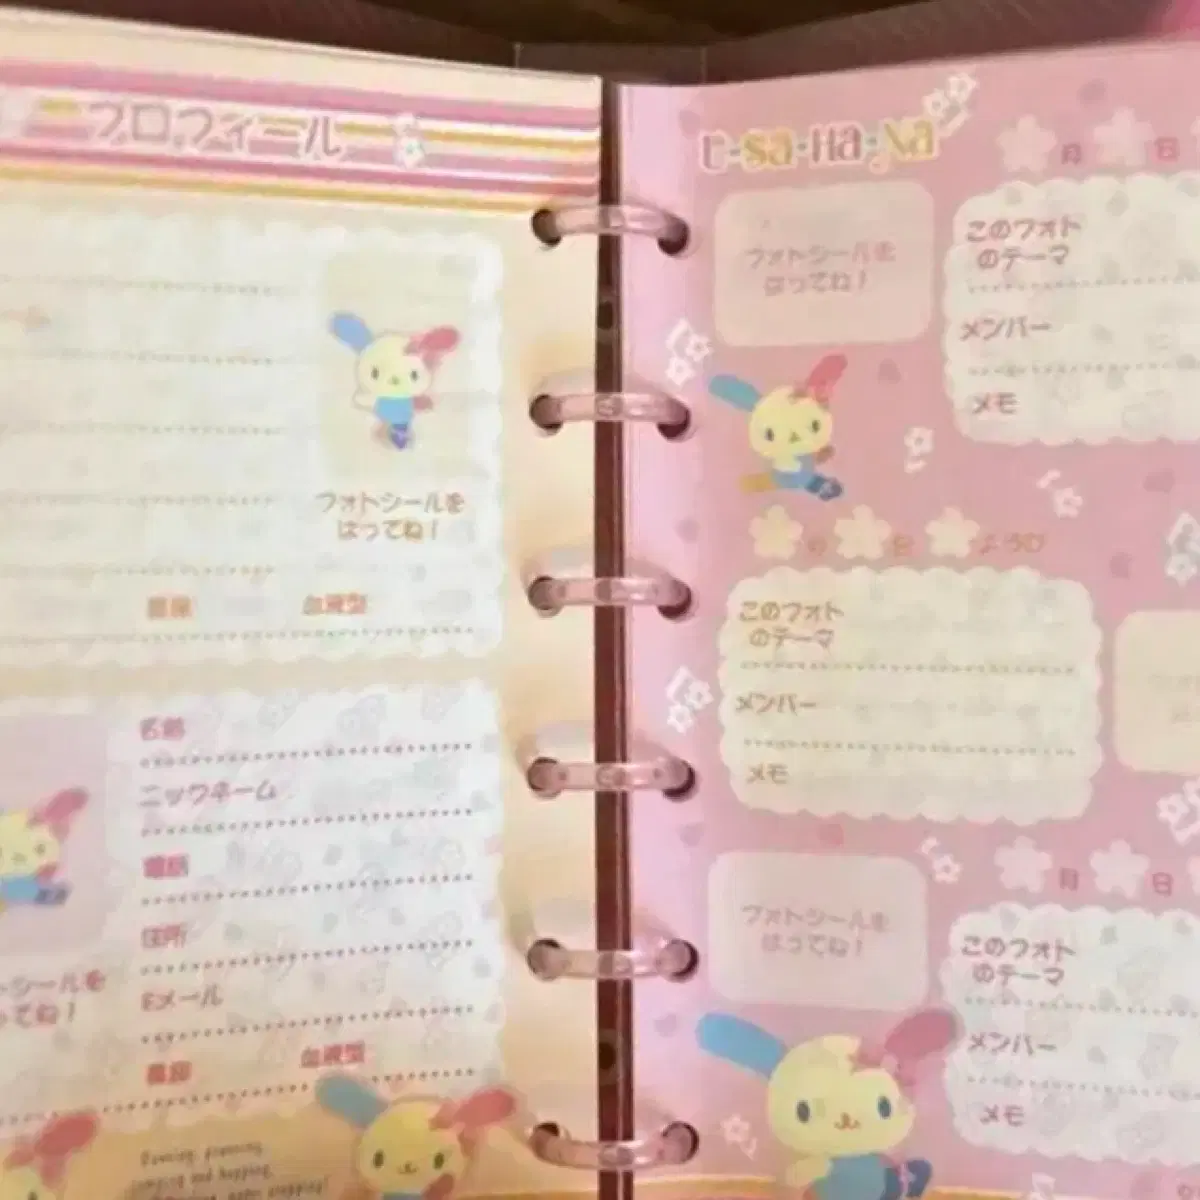 プロフィール
フォトシールを
はってね！
星座
血液型
名前
ニックネーム
電話
住所
Eメール
星座
血液型
シールを
てね！
U・SA・HA・NA
月
日
フォトシールを
はってね！
このフォト
のテーマ
メンバー
メモ
月
日
ようび
このフォト
のテーマ
メンバー
メモ
月
日
フォトシールを
はってね！
このフォト
のテーマ
メンバー
メモ